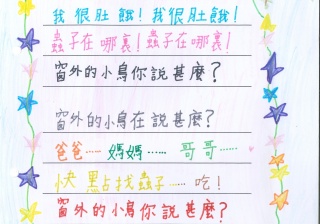 我很肚餓！我很肚餓！
蟲子在哪裏！蟲子在哪裏！
窗外的小鳥你說甚麼？
窗外的小鳥在說甚麼？
爸爸…… 媽媽…… 哥哥……
快點找蟲子…… 吃！
窗外的小鳥你說甚麼？